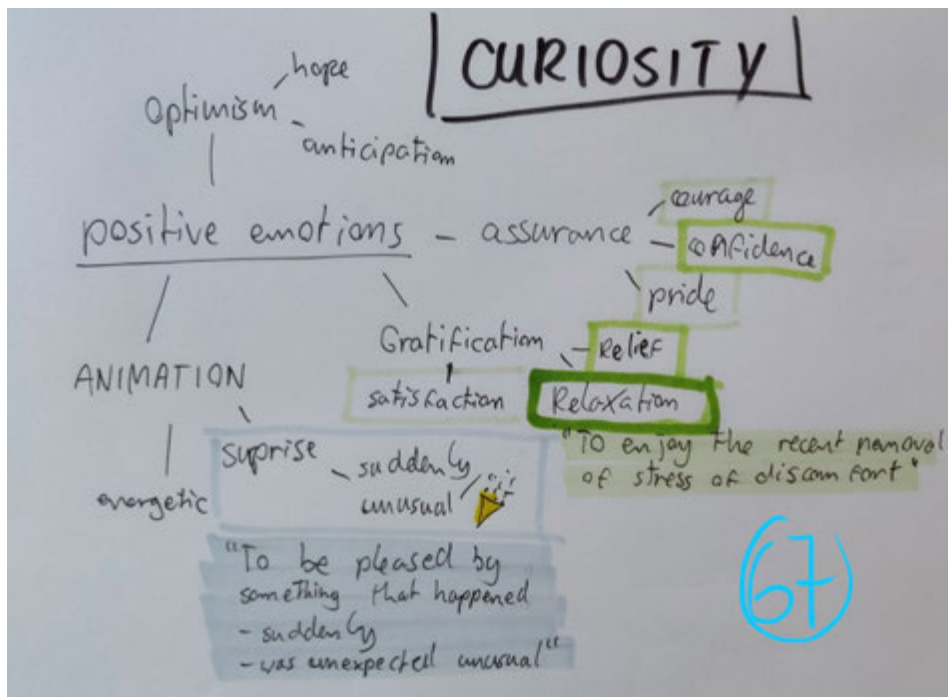 CURIOSITY
hope
Optimism
anticipation
positive emotions - assurance
courage
confidence
pride
Gratification
- Relief
satisfaction
Relaxation
"To enjoy the recent removal
of stress of discomfort"
ANIMATION
energetic
Suprise
- suddenly
unusual
"To be pleased by
something that happened
- suddenly
- was unexpected unusual"
67